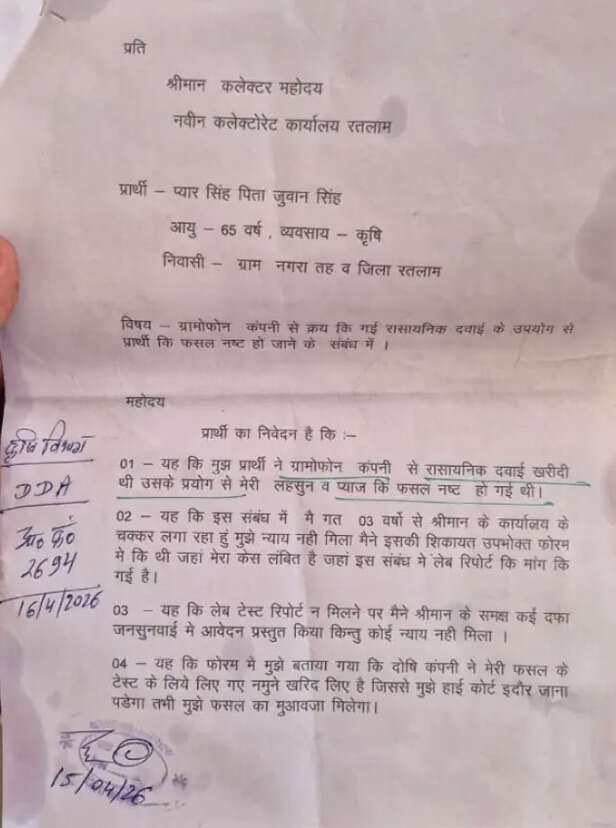 प्रति
श्रीमान कलेक्टर महोदय
नवीन कलेक्टोरेट कार्यालय रतलाम
प्रार्थी – प्यार सिंह पिता जुवान सिंह
आयु – 65 वर्ष , व्यवसाय – कृषि
निवासी – ग्राम नगरा तह व जिला रतलाम
विषय – ग्रामोफोन कंपनी से क्रय कि गई रासायनिक दवाई के उपयोग से
प्रार्थी कि फसल नष्ट हो जाने के संबंध में ।
महोदय
प्रार्थी का निवेदन है कि :–
01 – यह कि मुझ प्रार्थी ने ग्रामोफोन कंपनी से रासायनिक दवाई खरीदी
थी उसके प्रयोग से मेरी लहसुन व प्याज कि फसल नष्ट हो गई थी।
02 – यह कि इस संबंध में मै गत 03 वर्षो से श्रीमान के कार्यालय के
चक्कर लगा रहा हुं मुझे न्याय नही मिला मैने इसकी शिकायत उपभोक्त फोरम
मे कि थी जहां मेरा केस लंबित है जहां इस संबंध मे लेब रिपोर्ट कि मांग कि
गई है।
03 – यह कि लेब टेस्ट रिपोर्ट न मिलने पर मैने श्रीमान के समक्ष कई दफा
जनसुनवाई मे आवेदन प्रस्तुत किया किन्तु कोई न्याय नही मिला ।
04 – यह कि फोरम मे मुझे बताया गया कि दोषि कंपनी ने मेरी फसल के
टेस्ट के लिये लिए गए नमुने खरिद लिए है जिससे मुझे हाई कोर्ट इदौर जाना
पडेगा तभी मुझे फसल का मुआवजा मिलेगा।
कृषि विभाग
DDA
आ0 कं0
2694
16/4/2026
15/04/26